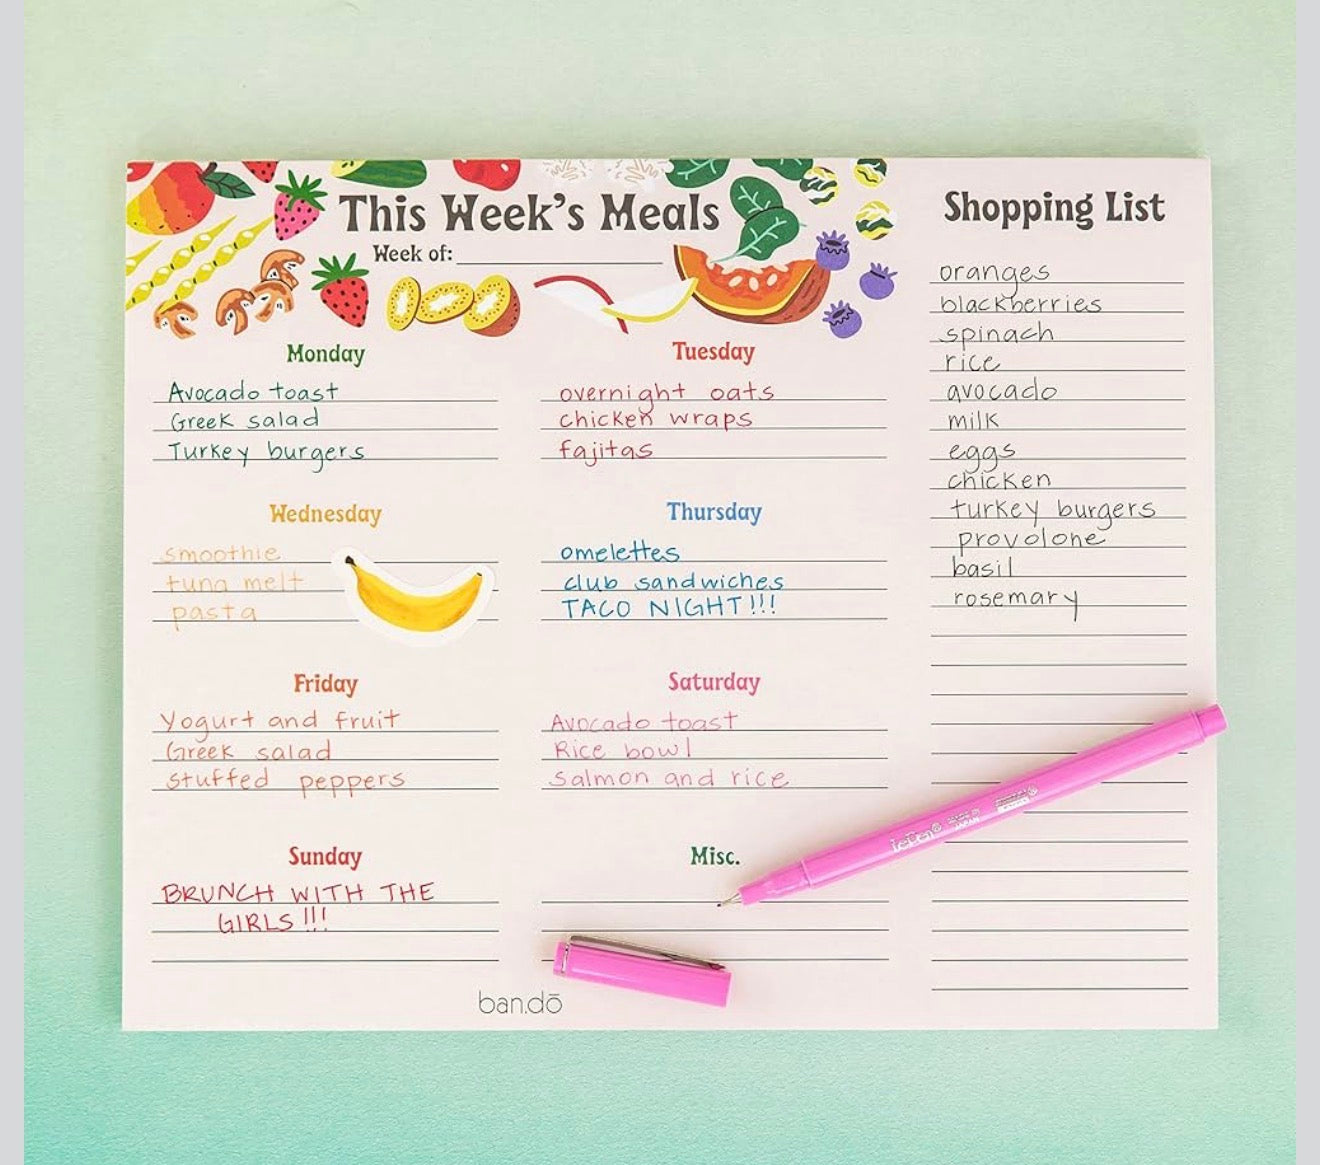 This Week's Meals
Week of:
Monday
Avocado toast
Greek salad
Turkey burgers
Tuesday
overnight oats
chicken wraps
fajitas
Wednesday
smoothie
tuna melt
pasta
Thursday
omelettes
club sandwiches
TACO NIGHT!!!
Friday
Yogurt and fruit
Greek salad
stuffed peppers
Saturday
Avocado toast
Rice bowl
Salmon and rice
Sunday
BRUNCH WITH THE
GIRLS!!!
Misc.
ban.dō
Shopping List
oranges
blackberries
spinach
rice
avocado
milk
eggs
chicken
turkey burgers
provolone
basil
rosemary
LePen®
MADE IN
JAPAN